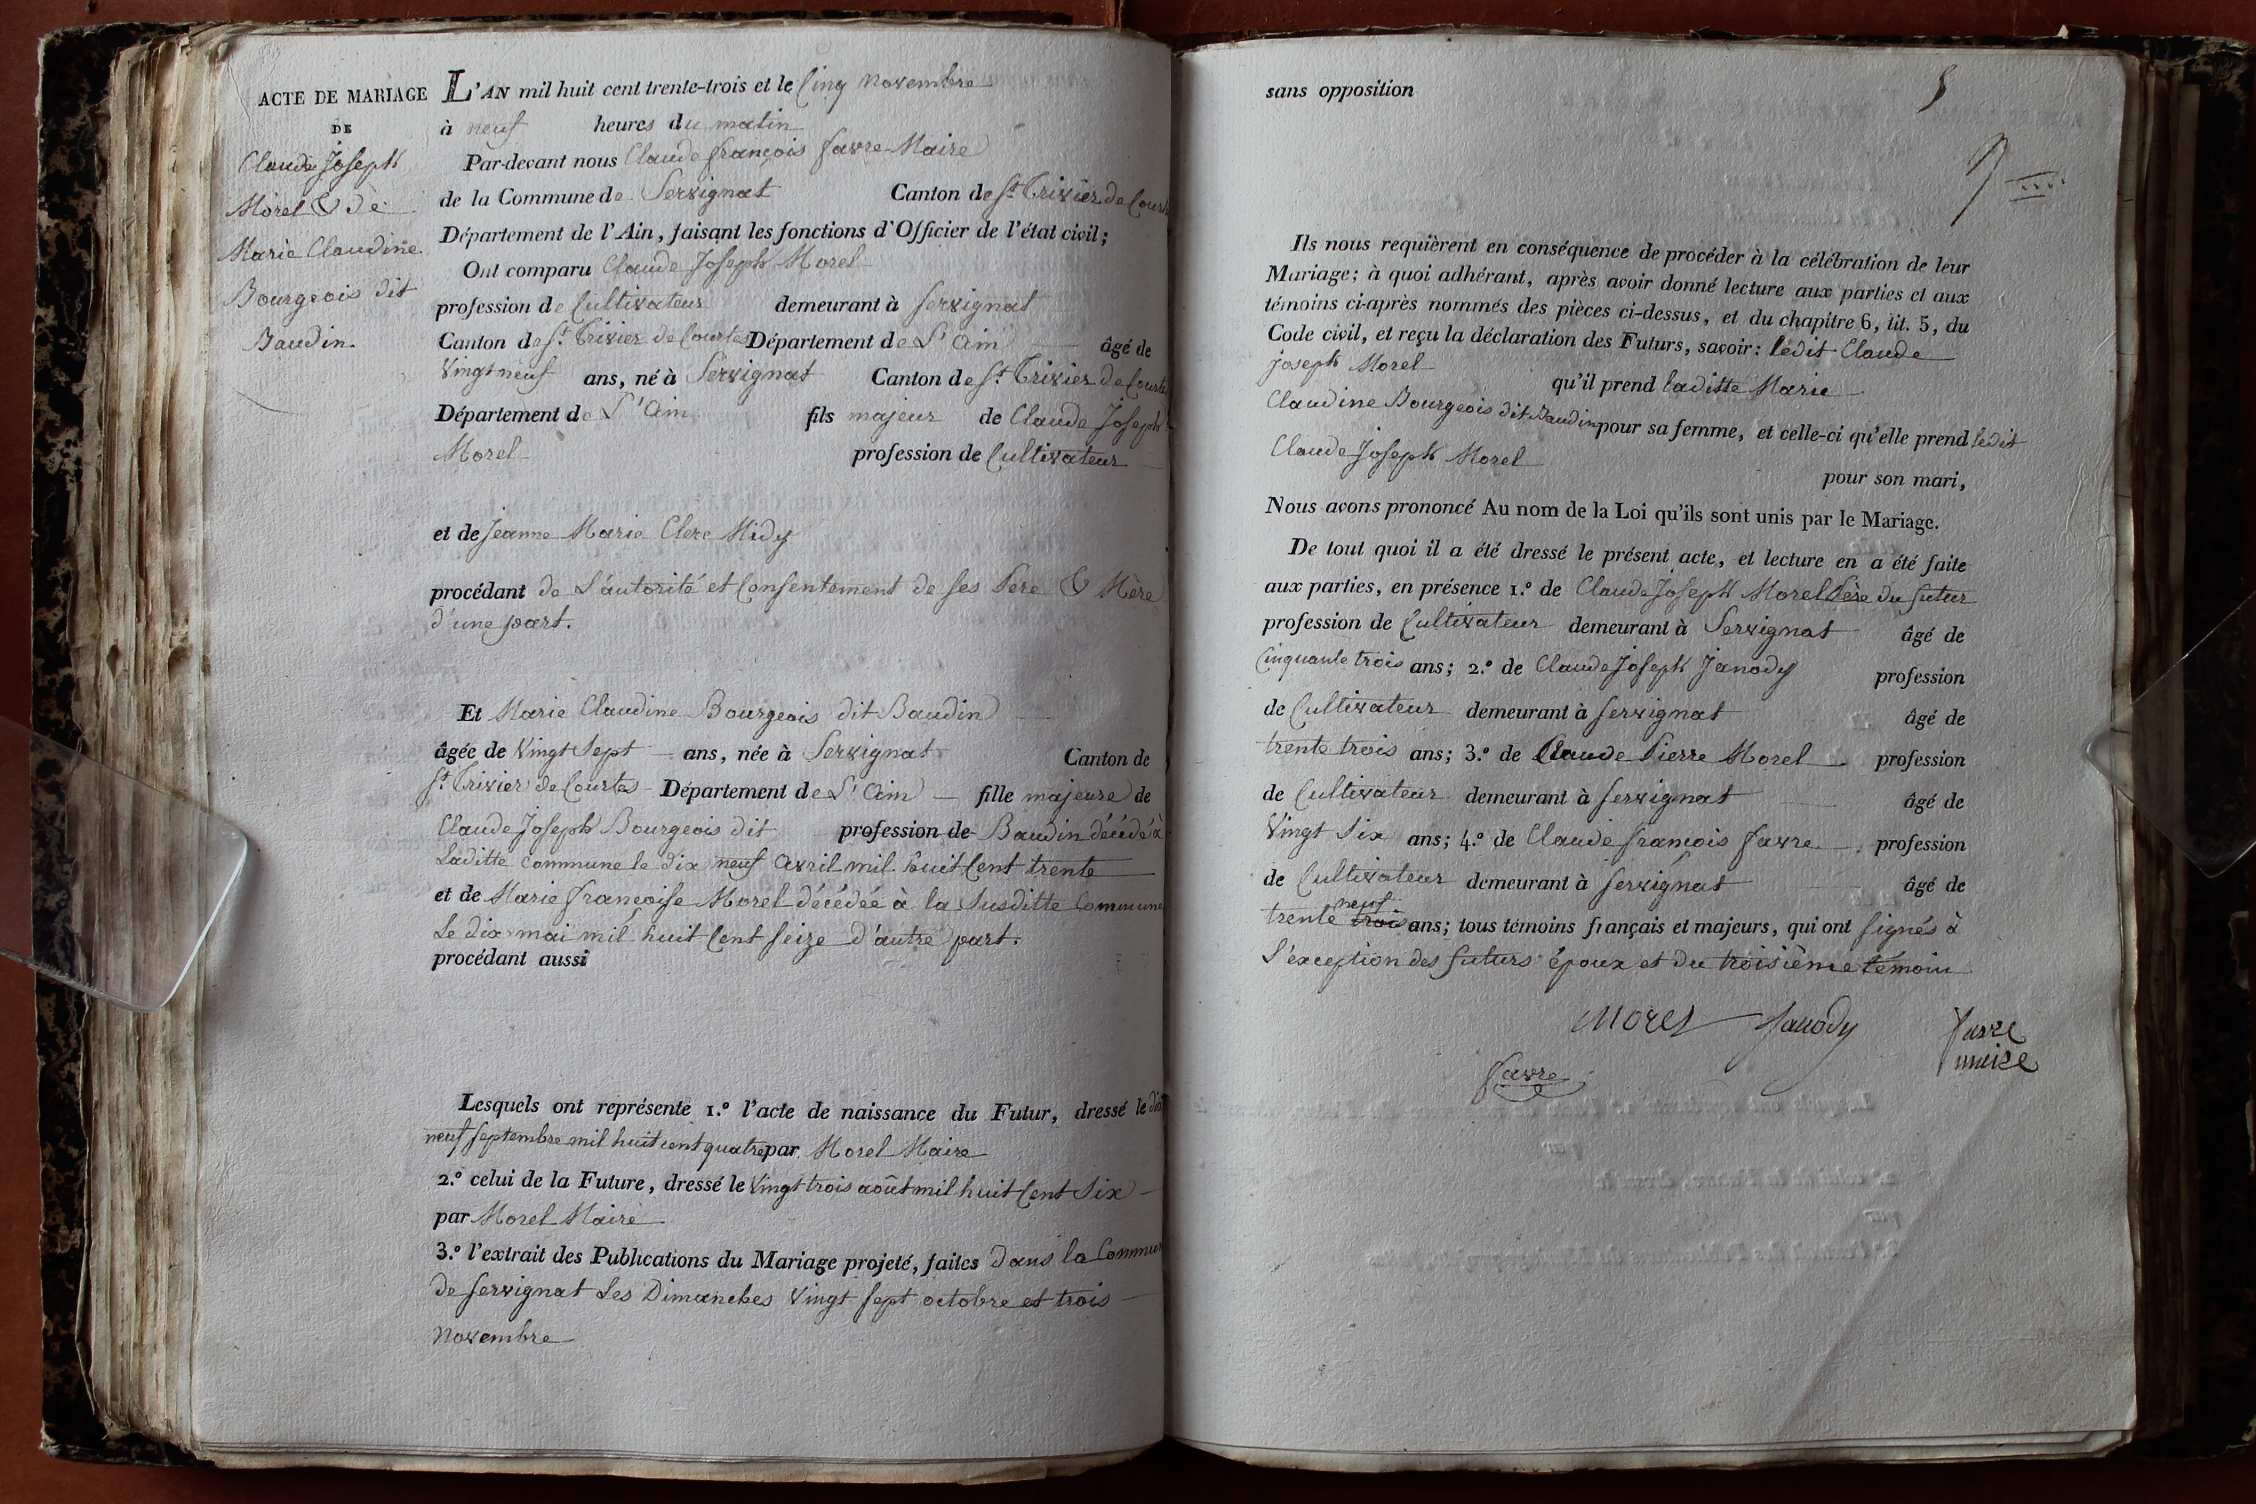 ACTE DE MARIAGE
DE
Claude Joseph
Morel & de
Marie Claudine
Bourgeois dit
Baudin.
L'AN mil huit cent trente-trois et le Cinq novembre
à neuf heures du matin
Par-devant nous Claude françois favre Maire
de la Commune de Servignat Canton de St. Trivier de Courtes
Département de l'Ain, faisant les fonctions d'Officier de l'état civil;
Ont comparu Claude Joseph Morel
profession de Cultivateur demeurant à Servignat
Canton de St. Trivier de Courtes Département de L'Ain âgé de
Vingt neuf ans, né à Servignat Canton de St. Trivier de Courtes
Département de L'Ain fils majeur de Claude Joseph
Morel profession de Cultivateur
et de Jeanne Marie Clerc Midy
procédant de L'autorité et Consentement de ses Père & Mère
d'une part.
Et Marie Claudine Bourgeois dit Baudin
âgée de Vingt Sept ans, née à Servignat Canton de
St. Trivier de Courtes Département de L'Ain fille majeure de
Claude Joseph Bourgeois dit profession de Baudin décédé à
Laditte commune le dix neuf avril mil huit Cent trente
et de Marie françoise Morel décédée à la Susditte Commune
Le dix mai mil huit Cent Seize d'autre part.
procédant aussi
Lesquels ont représenté 1.º l'acte de naissance du Futur, dressé le dix
neuf septembre mil huit cent quatre par Morel Maire
2.º celui de la Future, dressé le Vingt trois août mil huit Cent Six
par Morel Maire
3.º l'extrait des Publications du Mariage projeté, faites dans la Commune
de Servignat Les Dimanches Vingt Sept octobre et trois
novembre
sans opposition
Ils nous requièrent en conséquence de procéder à la célébration de leur
Mariage; à quoi adhérant, après avoir donné lecture aux parties et aux
témoins ci-après nommés des pièces ci-dessus, et du chapitre 6, tit. 5, du
Code civil, et reçu la déclaration des Futurs, savoir: ledit Claude
Joseph Morel qu'il prend laditte Marie
Claudine Bourgeois dit Baudin pour sa femme, et celle-ci qu'elle prend ledit
Claude Joseph Morel pour son mari,
Nous avons prononcé Au nom de la Loi qu'ils sont unis par le Mariage.
De tout quoi il a été dressé le présent acte, et lecture en a été faite
aux parties, en présence 1.º de Claude Joseph Morel Père du futur
profession de Cultivateur demeurant à Servignat âgé de
Cinquante trois ans; 2.º de Claude Joseph Janody profession
de Cultivateur demeurant à Servignat âgé de
trente trois ans; 3.º de Claude Pierre Morel profession
de Cultivateur demeurant à Servignat âgé de
Vingt Six ans; 4.º de Claude françois favre profession
de Cultivateur demeurant à Servignat âgé de
trente trois neuf ans; tous témoins français et majeurs, qui ont signés à
L'exception des futurs époux et du troisième témoin
Morel Janody favre
maire
favre